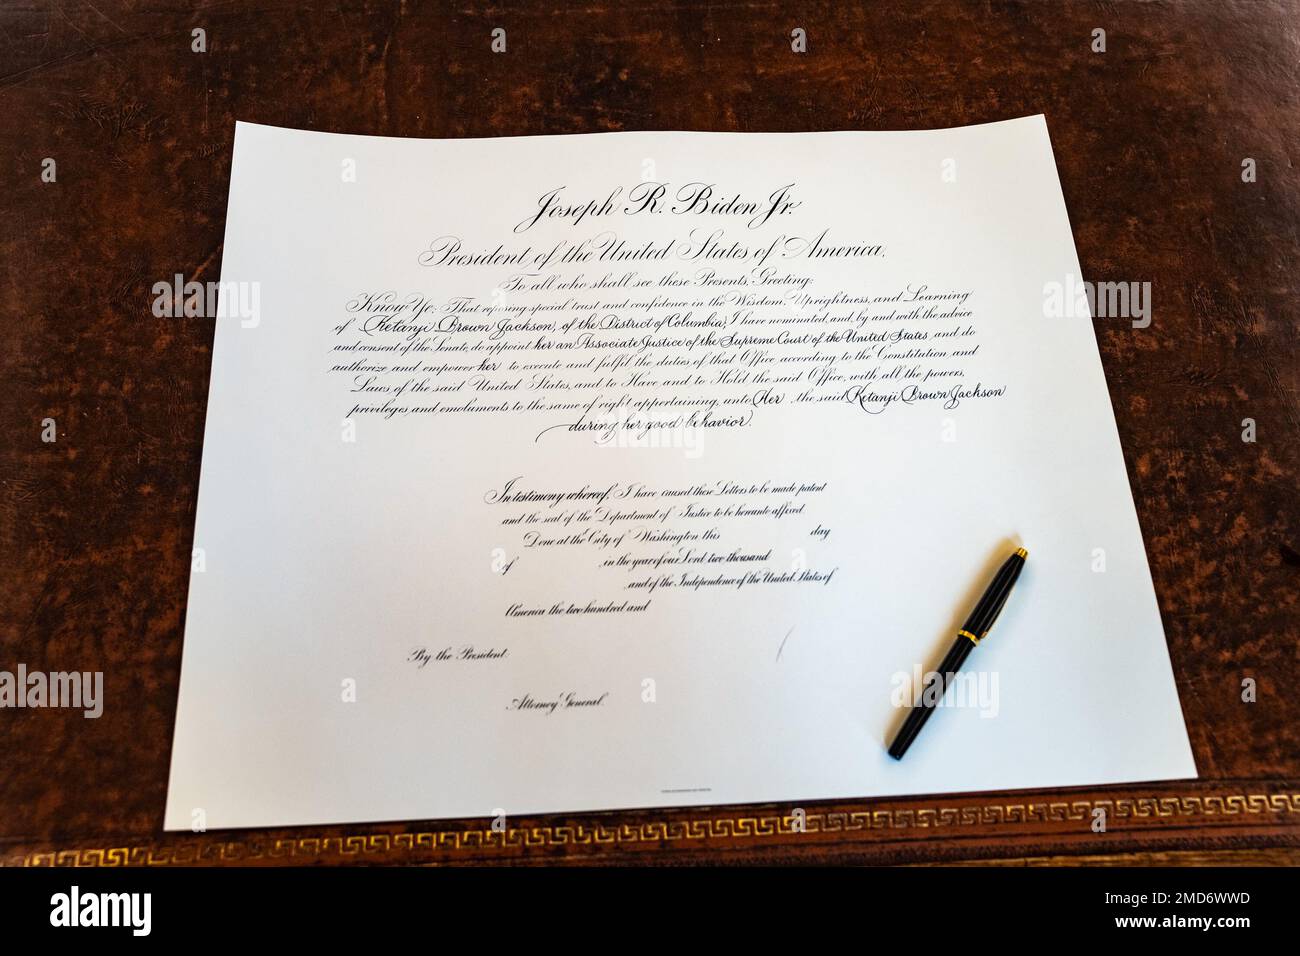 Joseph R. Biden Jr.
President of the United States of America.
To all who shall see these Presents, Greeting:
Know Ye; That reposing special trust and confidence in the Wisdom, Uprightness, and Learning
of Ketanji Brown Jackson, of the District of Columbia, I have nominated, and, by and with the advice
and consent of the Senate, do appoint her an Associate Justice of the Supreme Court of the United States and do
authorize and empower her to execute and fulfil the duties of that Office according to the Constitution and
Laws of the said United States, and to Have and to Hold the said Office, with all the powers,
privileges and emoluments to the same of right appertaining, unto Her, the said Ketanji Brown Jackson
during her good behavior.
In testimony whereof, I have caused these Letters to be made patent
and the seal of the Department of Justice to be hereunto affixed.
Done at the City of Washington this day
of , in the year of our Lord two thousand
and of the Independence of the United States of
America the two hundred and
By the President:
Attorney General.
alamy
Image ID: 2MD6WWD
www.alamy.com